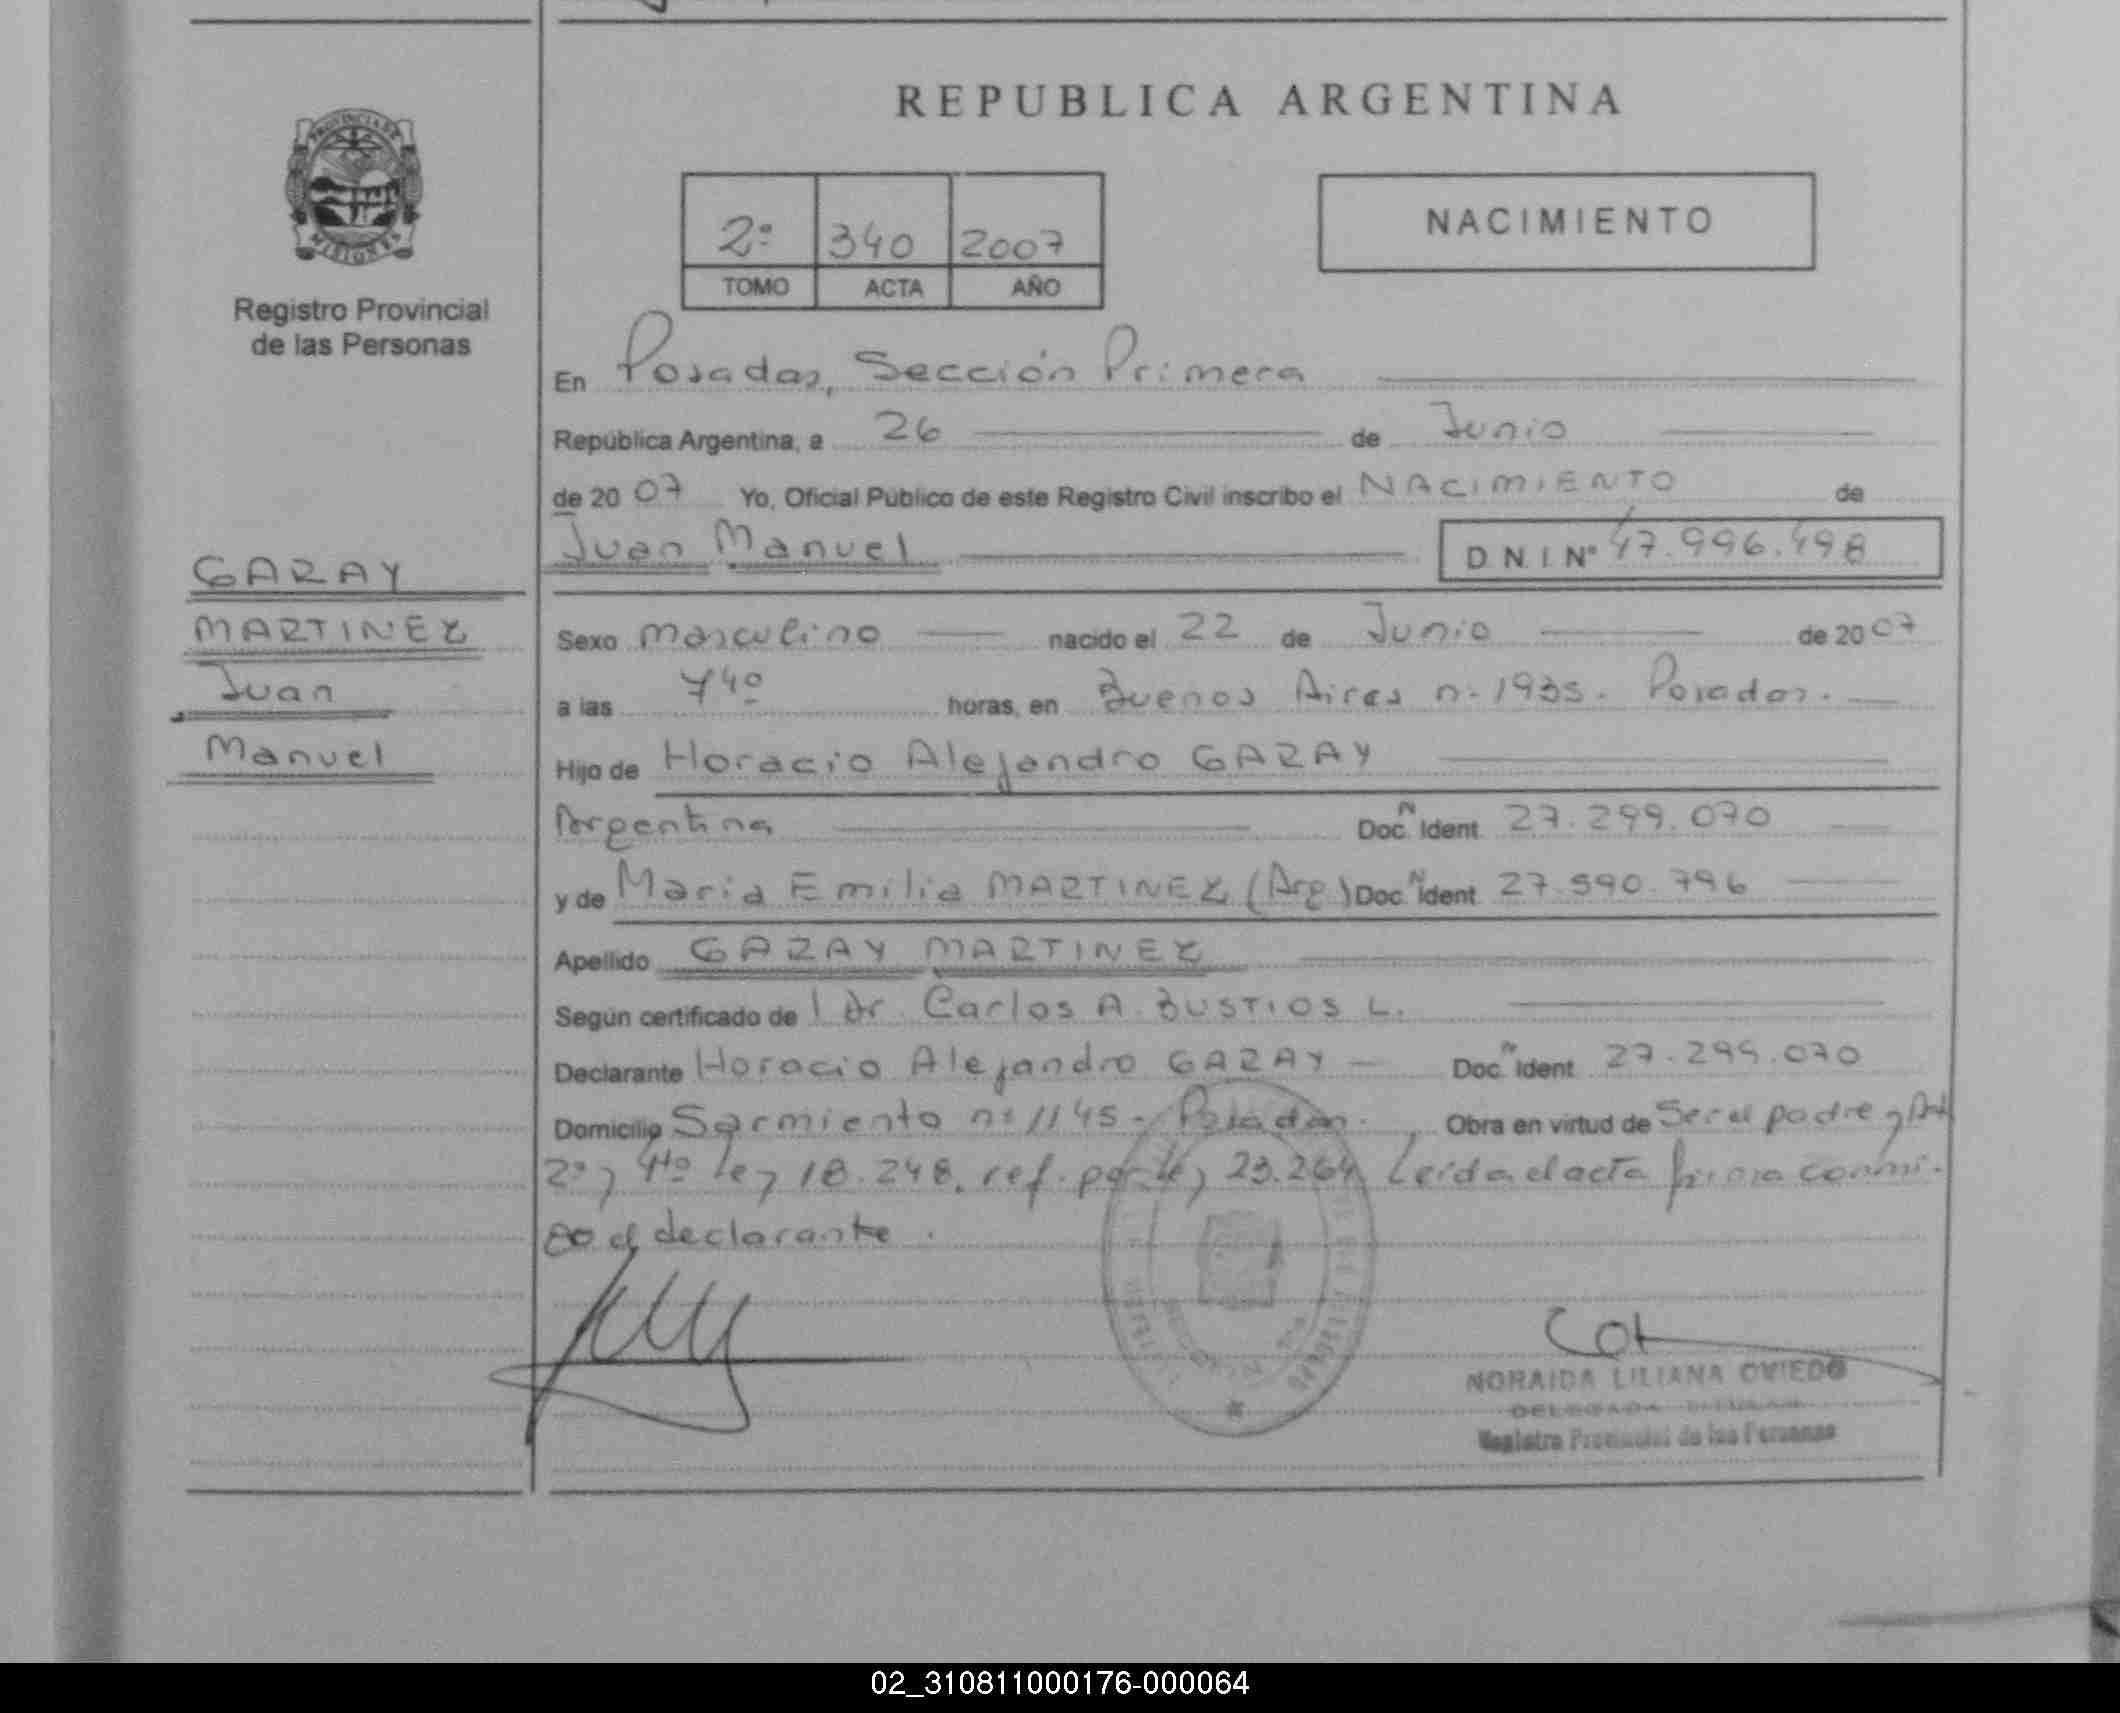 REPUBLICA ARGENTINA
PROVINCIA DE
MISIONES
Registro Provincial
de las Personas
2º 340 2007
TOMO ACTA AÑO
NACIMIENTO
En Posadas, Sección Primera
República Argentina, a 26 de Junio
de 20 07 Yo, Oficial Público de este Registro Civil inscribo el NACIMIENTO de
Juan Manuel D N I Nº 47.996.498
GARAY
MARTINEZ
Juan
Manuel
Sexo masculino nacido el 22 de Junio de 20 07
a las 7 40 horas, en Buenos Aires nº 1935. Posadas.
Hijo de Horacio Alejandro GARAY
Argentina Doc. N Ident 27.299.070
y de Maria Emilia MARTINEZ (Arg) Doc. N Ident 27.590.796
Apellido GARAY MARTINEZ
Según certificado de l Dr. Carlos A. BUSTIOS L.
Declarante Horacio Alejandro GARAY Doc. N Ident 27.299.070
Domicilio Sarmiento nº 1145 - Posadas. Obra en virtud de Ser el padre y Art
2º y 4to ley 18.248, ref. por ley 23.264 Leida el acta firma conmi-
go el declarante.
NORAIDA LILIANA OVIEDO
DELEGADA TITULAR
Registro Provincial de las Personas
02_310811000176-000064